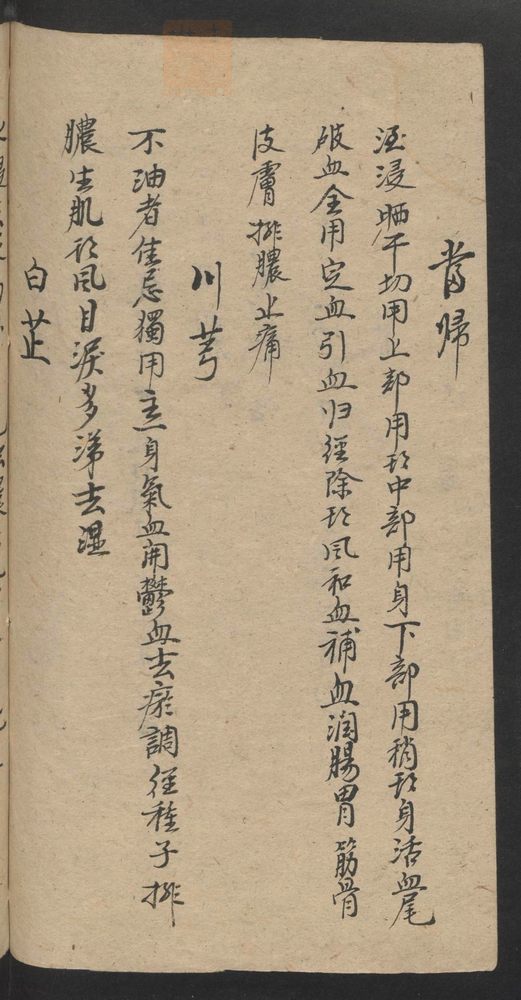 當帰
酒浸晒干切用上部用头中部用身下部用稍头身活血尾
破血全用定血引血归經除头風和血補血润腸胃筋骨
皮膚排膿止痛
川芎
不油者佳忌獨用主一身氣血開鬱血去瘀調經種子排
膿生肌头風目淚多涕去湿
白芷